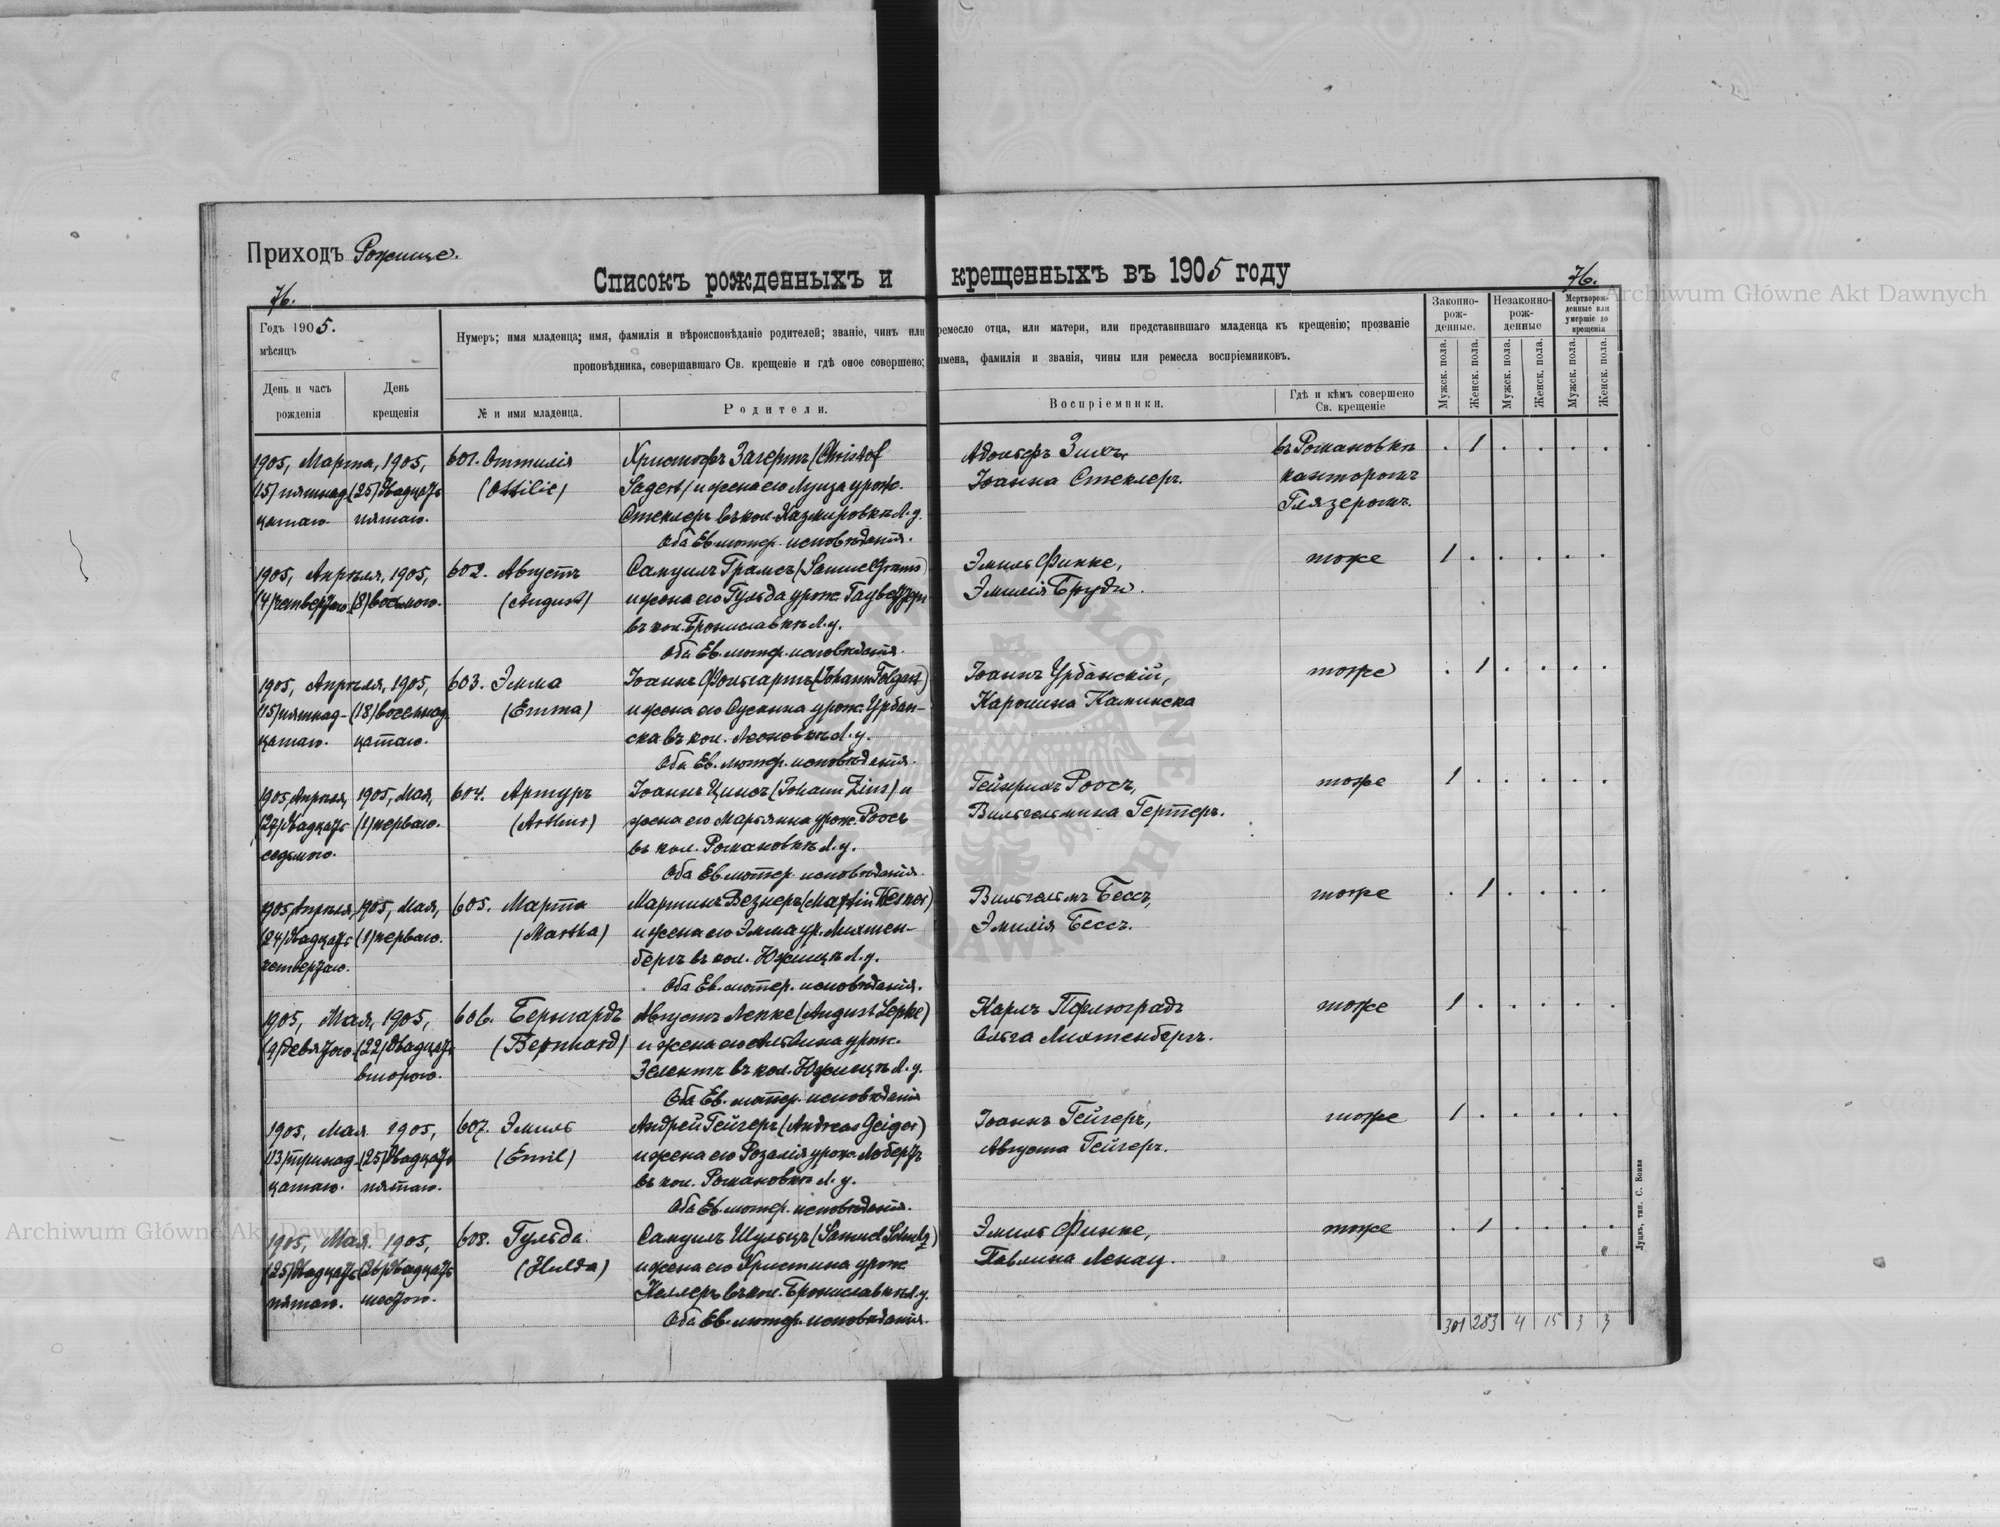 Приходъ Рожище.
Списокъ рожденныхъ и крещенныхъ въ 1905 году
76.
76.
Archiwum Główne Akt Dawnych
Годъ 1905.
мѣсяцъ
День и часъ рожденія
День крещенія
Нумеръ; имя младенца; имя, фамилія и вѣроисповѣданіе родителей; званіе, чинъ или ремесло отца, или матери, или представившаго младенца къ крещенію; прозваніе
проповѣдника, совершавшаго Св. крещеніе и гдѣ оное совершено; имена, фамилія и званія, чины или ремесла воспріемниковъ.
№ и имя младенца.
Родители.
Воспріемники.
Гдѣ и кѣмъ совершено
Св. крещеніе
Законно-
рож-
денные.
Незаконно-
рож-
денные
Мертворож-
денные или
умершіе до
крещенія
Мужск. пола.
Женск. пола.
Мужск. пола.
Женск. пола.
Мужск. пола.
Женск. пола.
1905, Марта, 1905, 601. Оттилія Христофъ Загертъ (Christof Адольфъ въ Романовкѣ . 1 . . . .
(15) пятнад- (25) двадцать (Ottilie) Sagert) и жена его Луиза урож. Іоанна Стеклеръ. канторомъ
цатаго. пятаго. Стеклеръ въ кол. Казмировкѣ Л. у. Глязеромъ.
Оба Ев. лютер. исповѣданія.
1905, Апрѣля, 1905, 602. Августъ Самуилъ Грамсъ (Samuel Grams) Эмиль Финке, тоже 1 . . . . .
(4) четвертаго (8) восьмого. (August) и жена его Гульда урож. Эмилія
въ кол. Брониславкѣ Л. у.
Оба Ев. лютер. исповѣданія.
1905, Апрѣля, 1905, 603. Эмма Іоаннъ Фольгартъ (Johann Folgart) Іоаннъ Урбанскій, тоже . 1 . . . .
(15) пятнад- (18) восемнад- (Emma) и жена его Сусанна урож. Урбан- Каролина Каминска
цатаго. цатаго. ска въ кол. Леоновкѣ Л. у.
Оба Ев. лютер. исповѣданія.
1905, Апрѣля, 1905, Мая, 604. Артуръ Іоаннъ Цинсъ (Johann Zins) и Гейнрихъ Роосъ, тоже 1 . . . . .
(27) двадцать (1) перваго. (Arthur) жена его Марьянна урож. Роосъ Вильгельмина Гертеръ.
седьмого. въ кол. Романовкѣ Л. у.
Оба Ев. лютер. исповѣданія.
1905, Апрѣля, 1905, Мая, 605. Марта Мартинъ Везнеръ (Martin Wesner) Вильгельмъ Бессъ, тоже . 1 . . . .
(24) двадцать (1) перваго. (Martha) и жена его Эмма ур. Лихтен- Эмилія Бессъ.
четвертаго. бергъ въ кол. Южицкѣ Л. у.
Оба Ев. лютер. исповѣданія.
1905, Мая, 1905, 606. Бернгардъ Августъ Лепке (August Lepke) Карлъ тоже 1 . . . . .
(9) девятаго (22) двадцать (Bernhard) и жена его Альвина урож. Ольга Лихтенбергъ.
второго. въ кол. Южицкѣ Л. у.
Оба Ев. лютер. исповѣданія
1905, Мая 1905, 607. Эмиль Андрей Гейгеръ (Andreas Geiger) Іоаннъ Гейгеръ, тоже 1 . . . . .
(13) тринад- (25) двадцать (Emil) и жена его Розалія урож. Августа Гейгеръ.
цатаго. пятаго. въ кол. Романовкѣ Л. у.
Оба Ев. лютер. исповѣданія.
1905, Мая 1905, 608. Гульда Самуилъ Шульцъ (Samuel Schulz) Эмиль Финке, тоже . 1 . . . .
(25) двадцать (26) двадцать (Hulda) и жена его Христина урож. Павлина Ленац.
пятаго. шестого. Келлеръ въ кол. Брониславкѣ Л. у.
Оба Ев. лютер. исповѣданія.
301 283 4 15 3 3
Луцкъ, тип. С. Бокка
Archiwum Główne Akt Dawnych